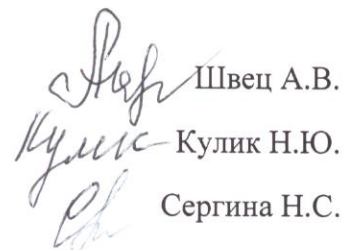 Швец А.В.
Кулик Кулик Н.Ю.
Сергина Н.С.